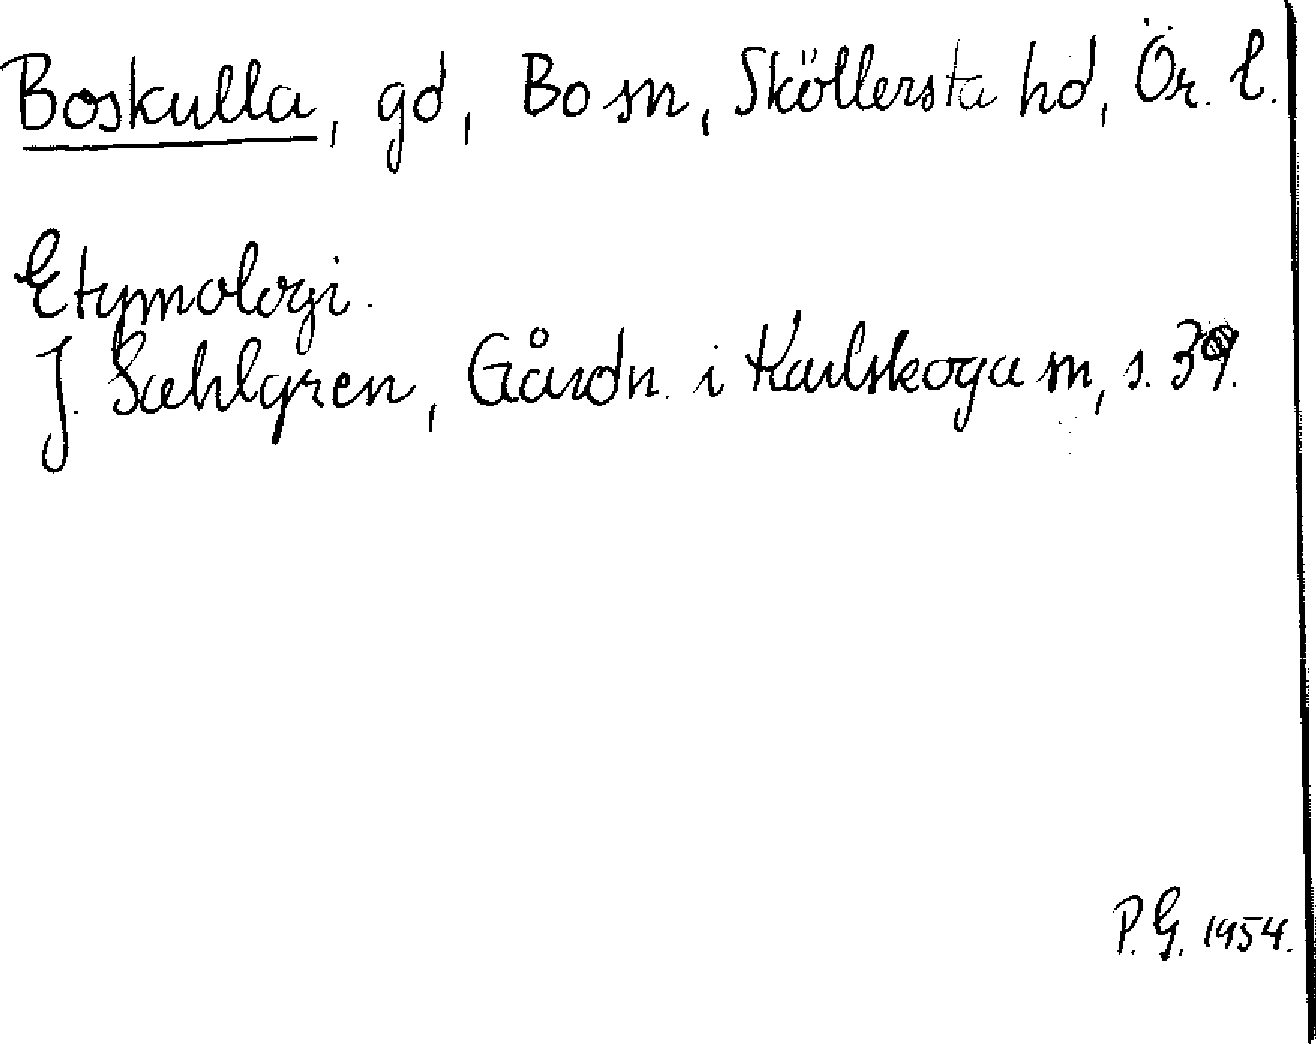 Boskulla, gd, Bo sn, Sköllersta hd, Ör. l.
Etymologi.
J. Sahlgren, Gårdn. i Karlskoga sn, s. 39.
P. G. 1954.